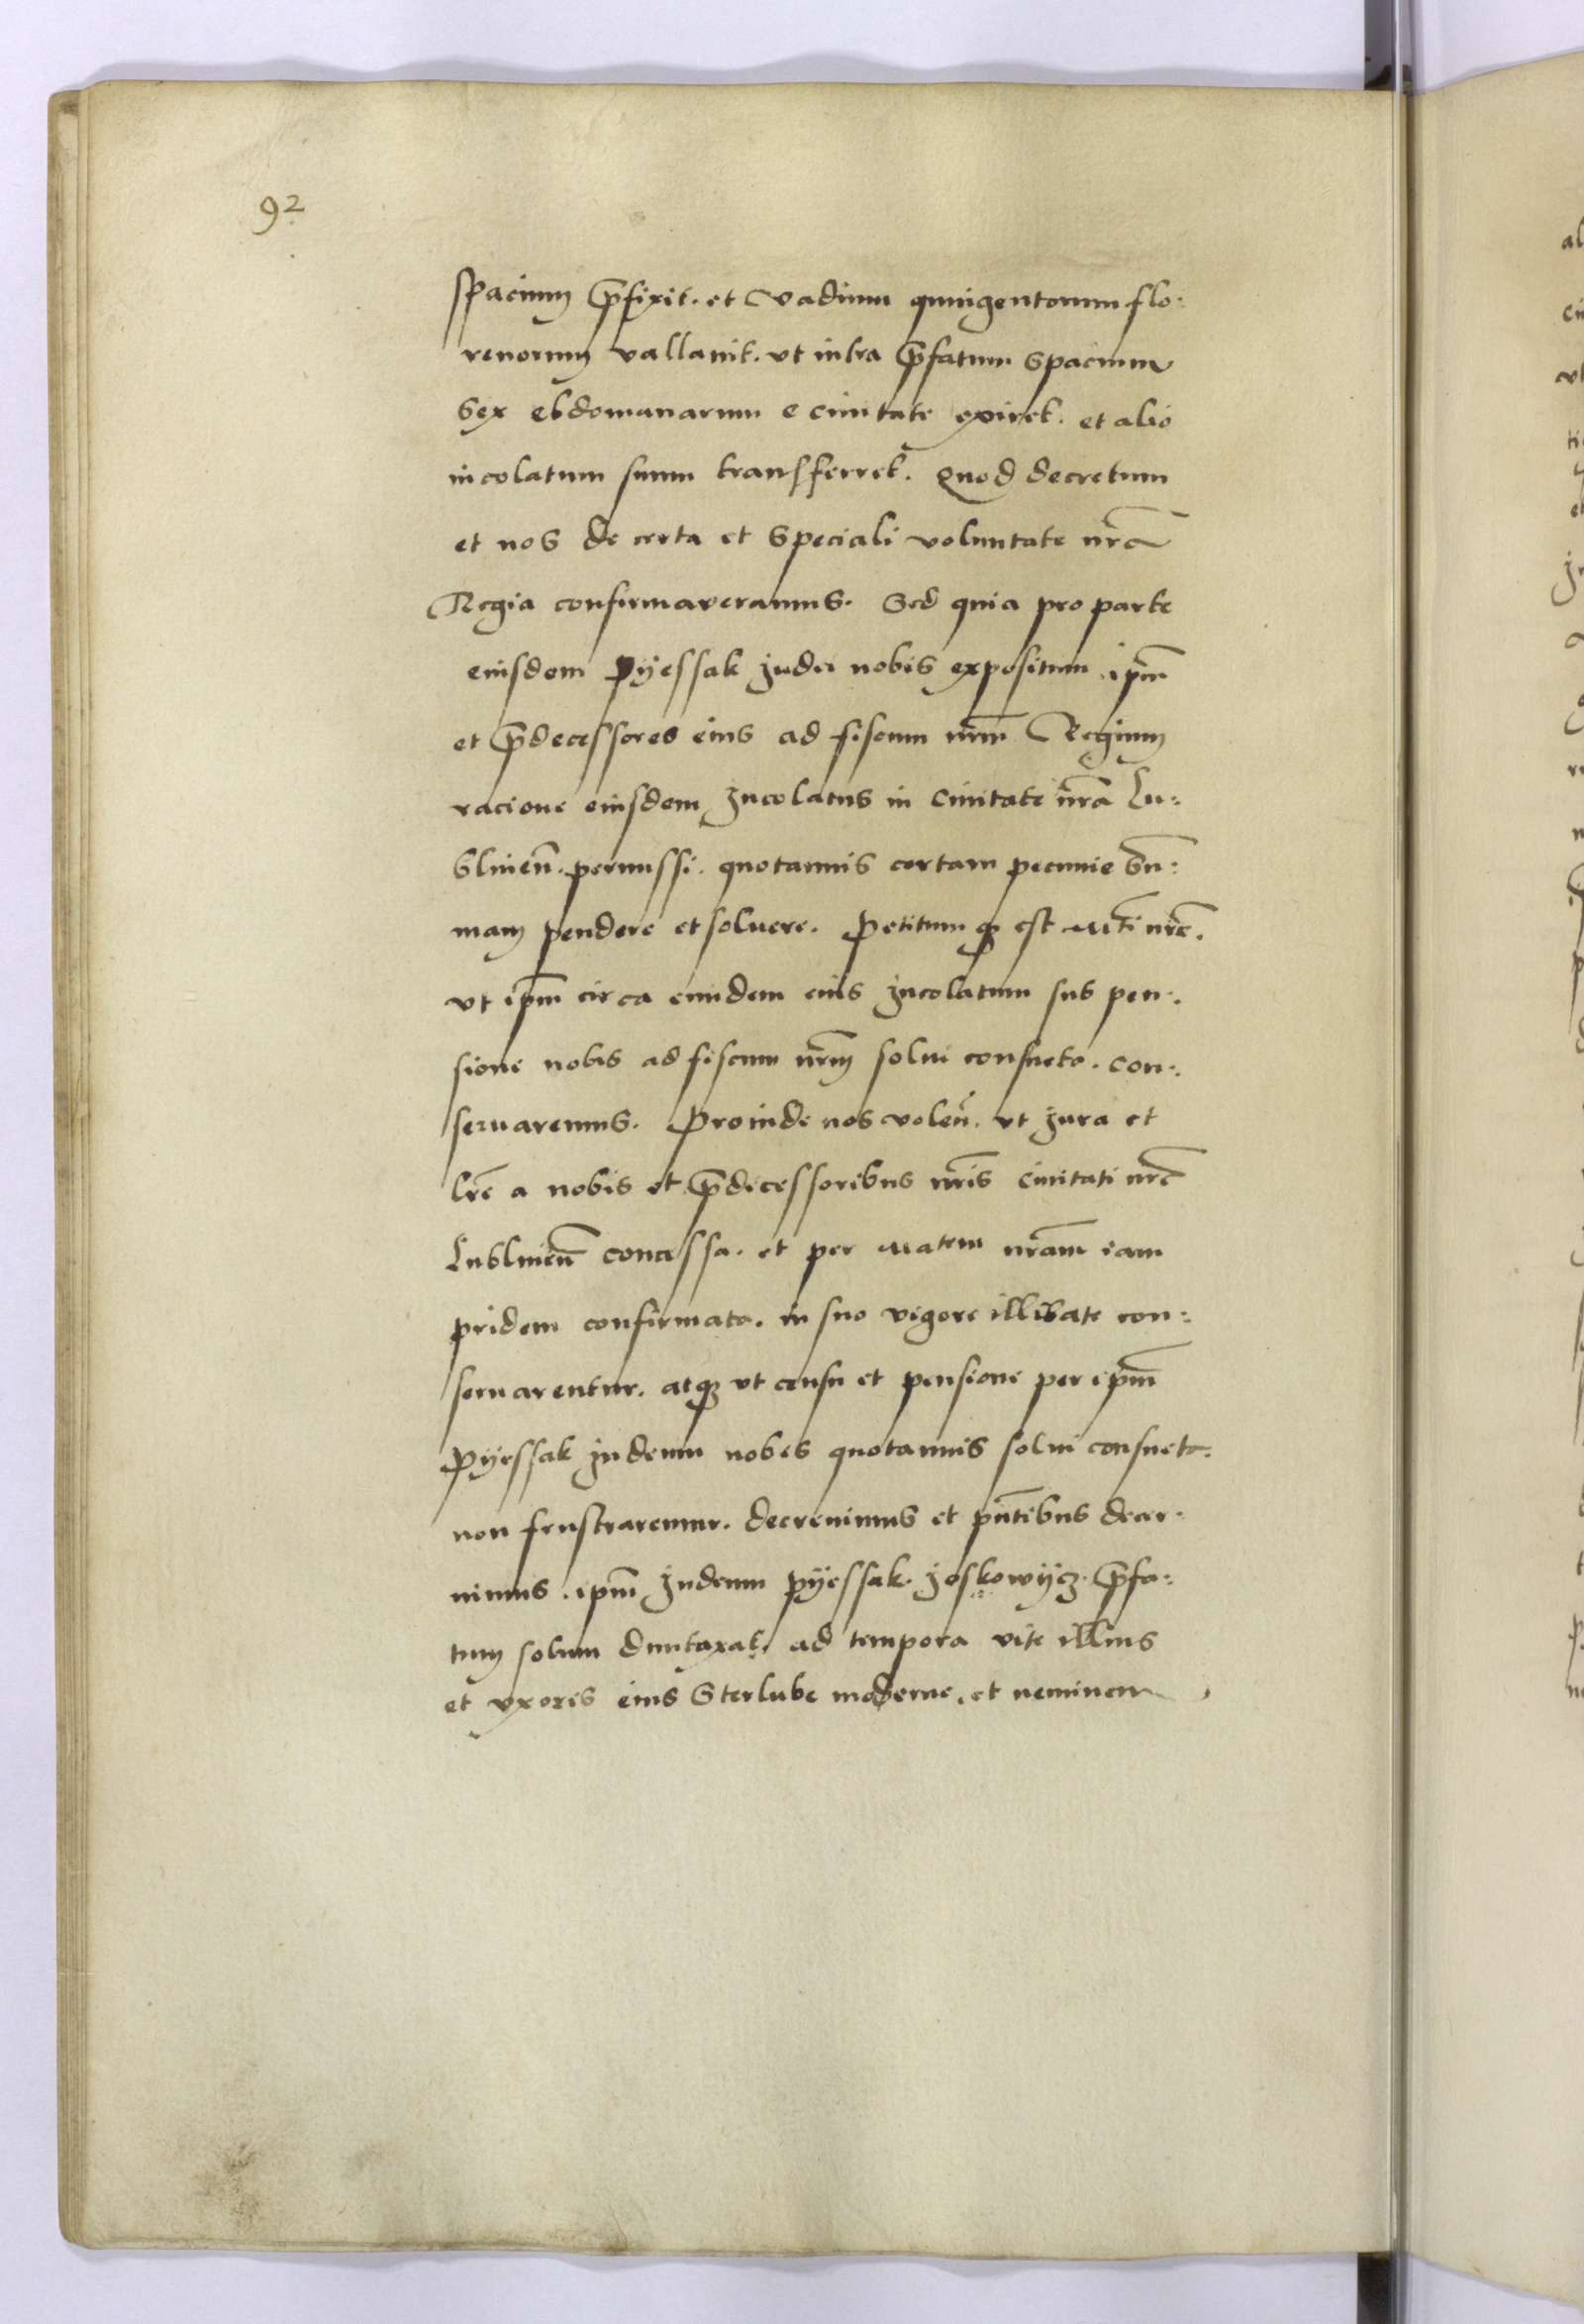 92
spacium p̄fixit. et Vadium quingentorum flo:
renorum vallauit. vt intra p̄fatum spacium
sex ebdomanarum e ciuitate exiret. et alio
incolatum suum transferret. Quod decretum
et nos de certa et speciali voluntate nr̄a
Regia confirmaveramus. Sed quia pro parte
eiusdem Pyessak Judei nobis expositum. ip̄m
et p̄decessores eius ad fiscum nr̄m Regium
racione eiusdem Incolatus in Ciuitate nr̄a Lu:
blinen̄. permissi. quotannis certam pecunie sū:
mam pendere et soluere. Petitumq3 est Mti nr̄e.
vt ip̄m circa eundem eius Incolatum sub pen:
sione nobis ad fiscum nr̄m solui consueta. con:
seruaremus. Proinde nos volen̄. vt Jura et
lr̄e a nobis et p̄decessoribus nr̄is Ciuitati nr̄e
Lublinen̄ concessa. et per Matem nr̄am iam
pridem confirmata. in suo vigore illibate con:
seruarentur. atq3 vt censu et pensione per ip̄m
Pyessak Judeum nobis quotannis solui consueta.
non frustraremur. decreuimus et pn̄tibus decer:
nimus. ip̄m Judeum Pyessak. Joskowycz. p̄fa:
tum solum duntaxat. ad tempora vite illius
et vxoris eius Sterlube moderne. et neminem
al
vt